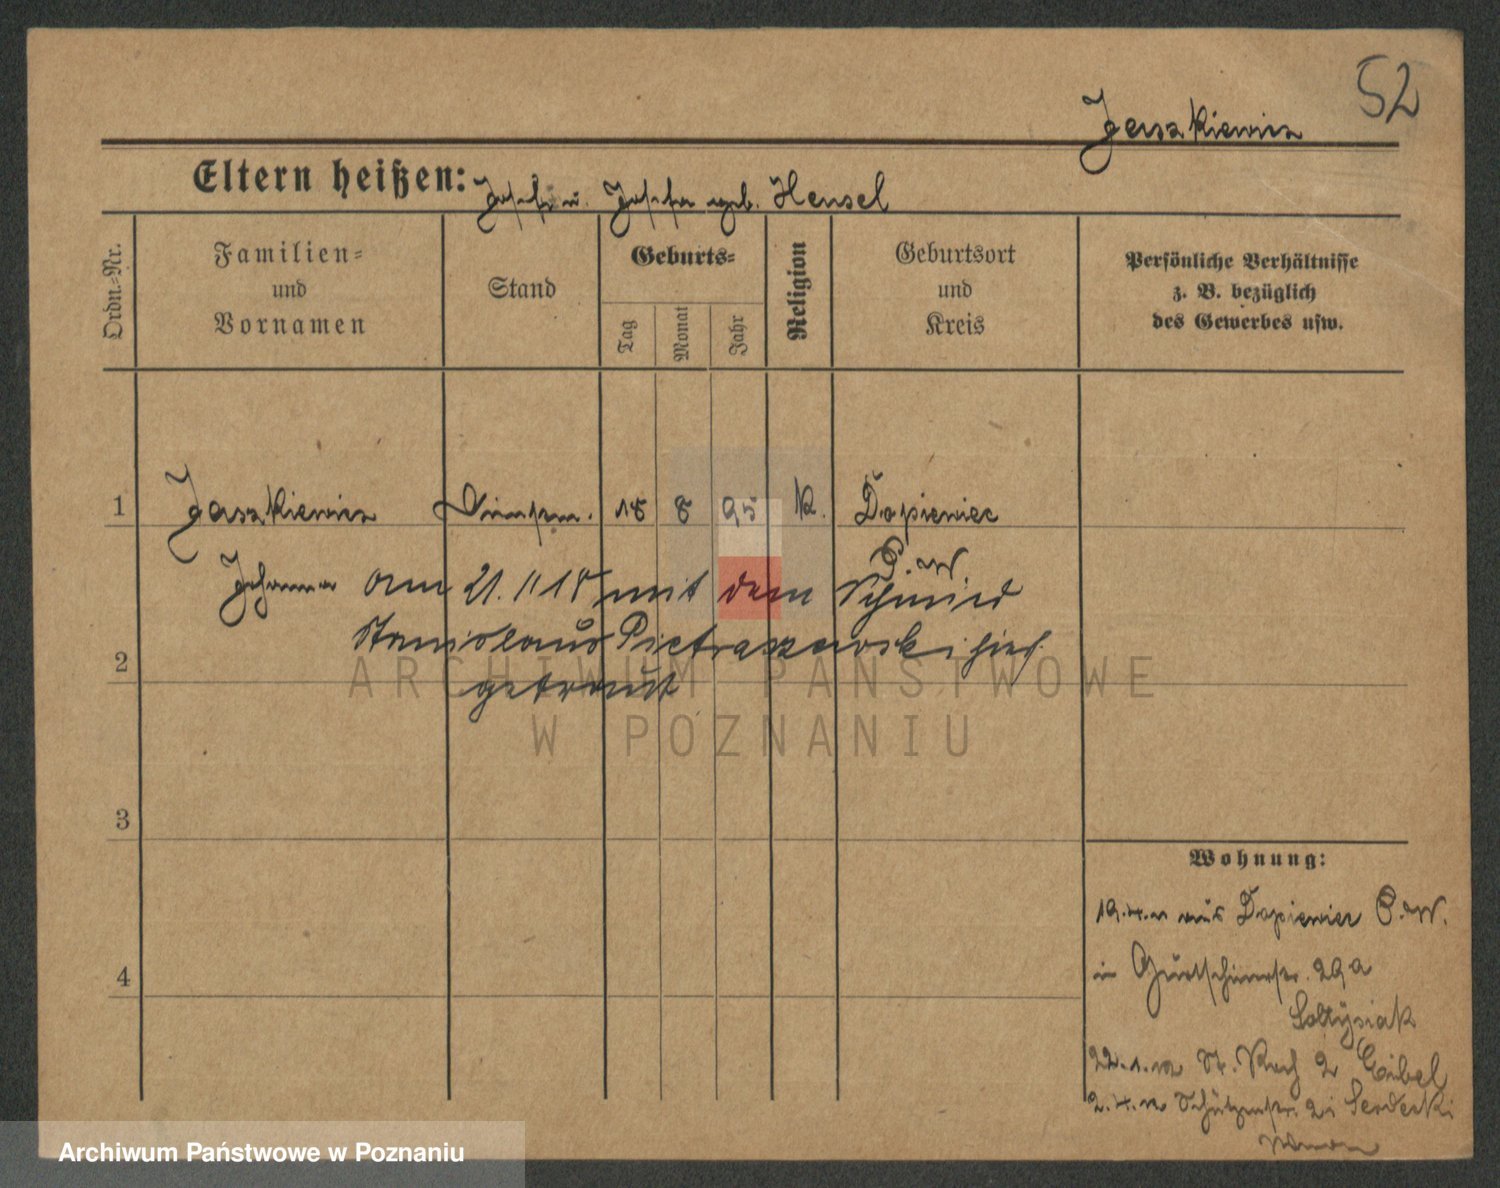 52
Jaszkiewicz
Eltern heißen: Josef u. Josefa geb. Hensel
Ordn.-Nr.
Familien-
und
Vornamen
Stand
Geburts-
Tag
Monat
Jahr
Religion
Geburtsort
und
Kreis
Persönliche Verhältnisse
z. B. bezüglich
des Gewerbes usw.
1 Jaszkiewicz 18 8 95 K. Dopiewiec
P. W
Johanna am 21. II 18 mit dem Schmied
Stanislaus Pietraszewski hier
2
getraut
3
4
Wohnung:
19.4. aus Dopiewiec P. W.
in Gurtschinerstr. 29a
Soltysiak
22.1. St. Roch 2 Eibel
2.4. Schützenstr. 21
ARCHIWUM PAŃSTWOWE
W POZNANIU
Archiwum Państwowe w Poznaniu